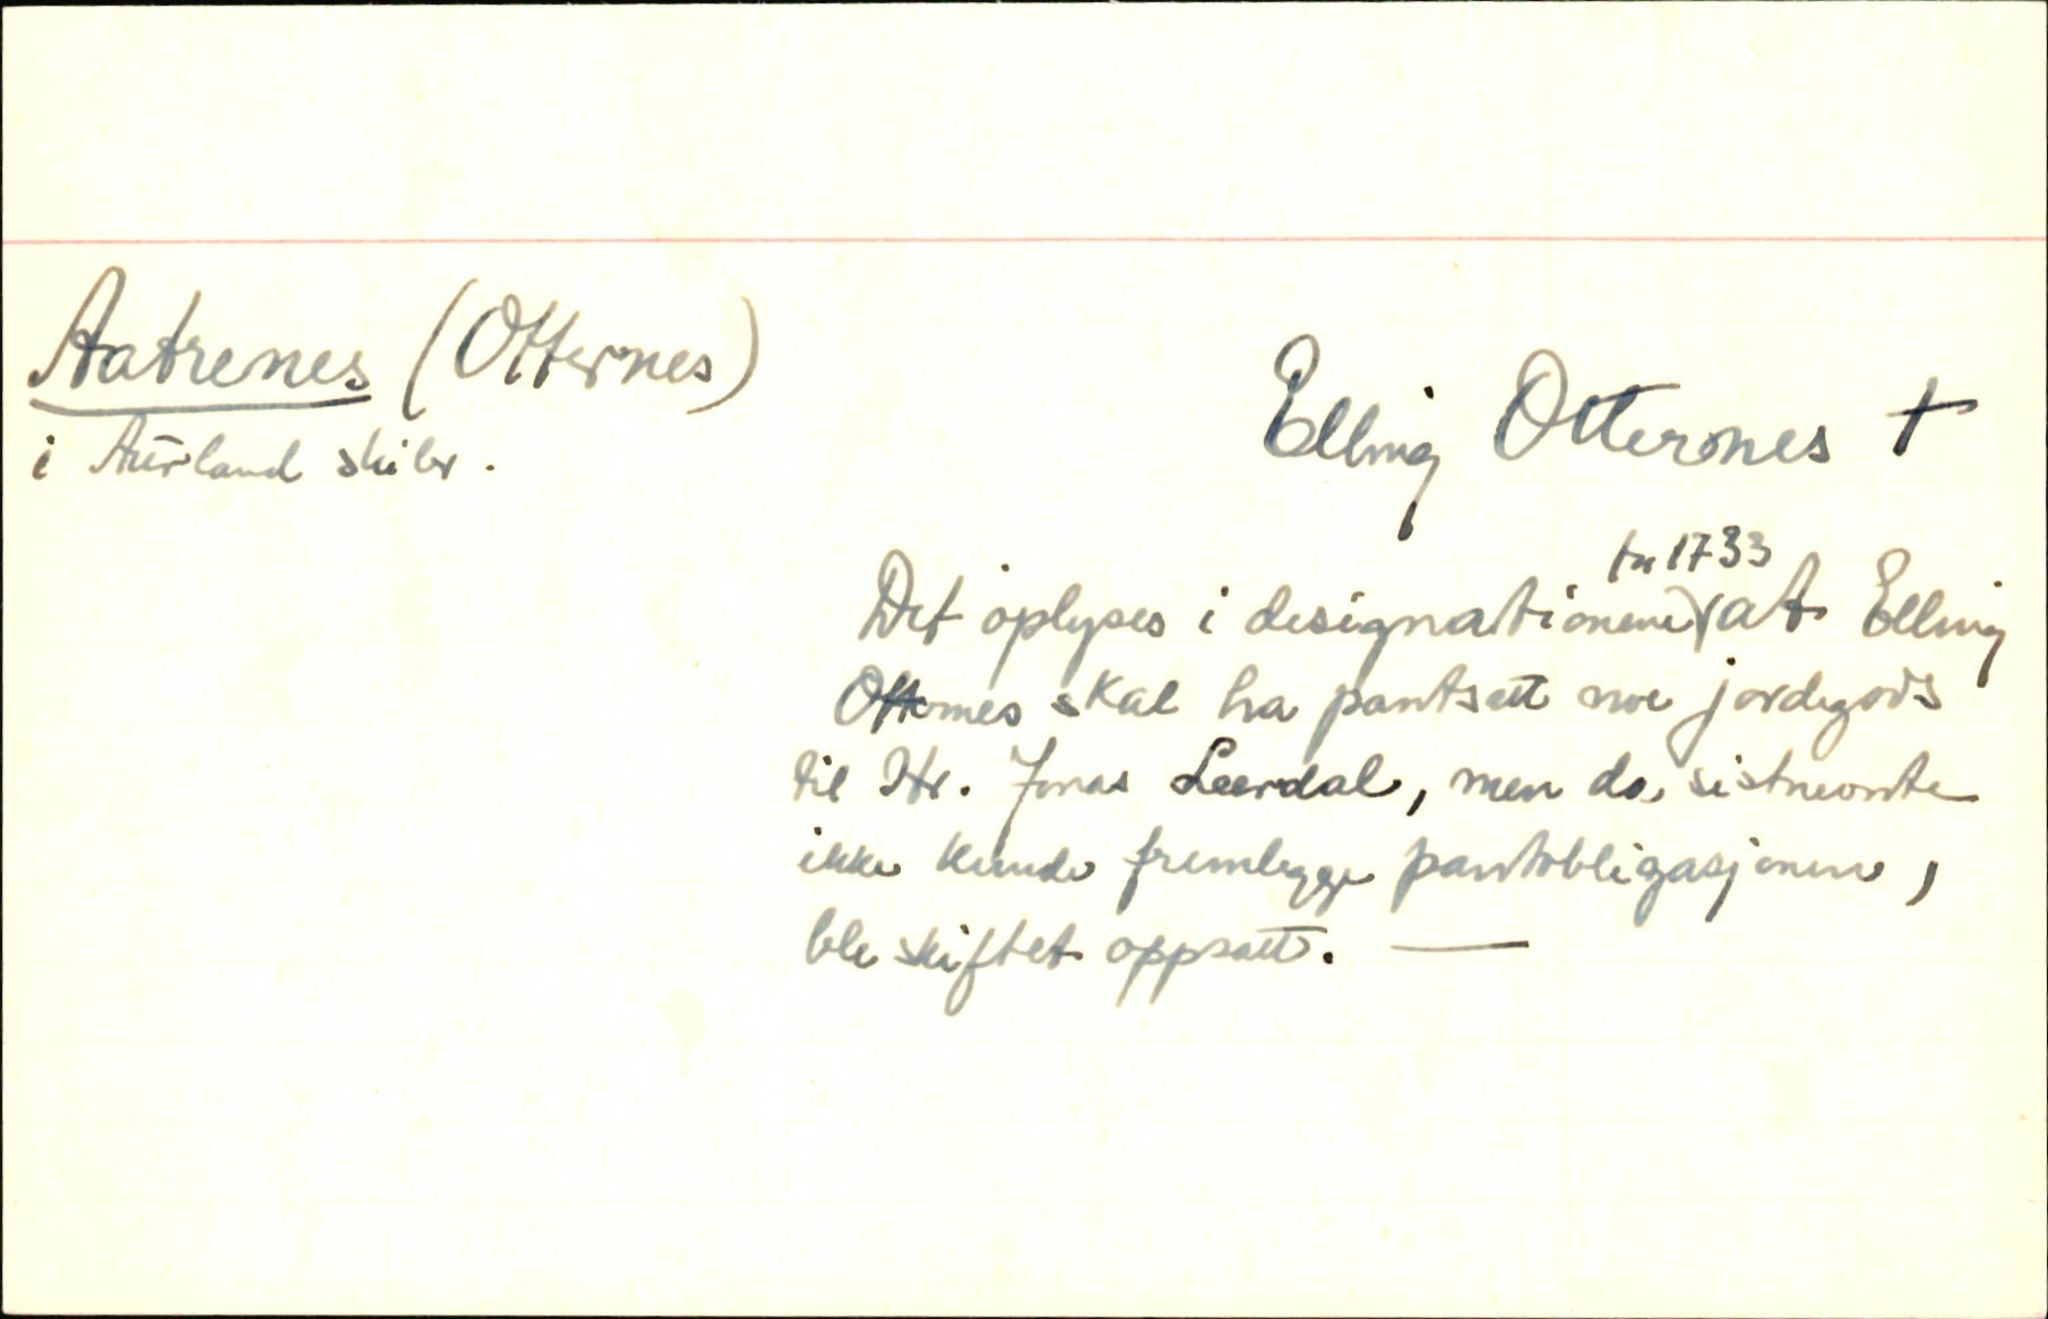 Aatrenes (Otternes)
i Aurland skibr.
Elling Otternes †
fra 1733
Det oplyses i designationene at Elling
Otternes skal ha pantsatt noe jordegods
til Hr. Jonas Leerdal, men da sistnevnte
ikke kunde fremlegge pantobligasjonene,
ble skiftet oppsatt. —